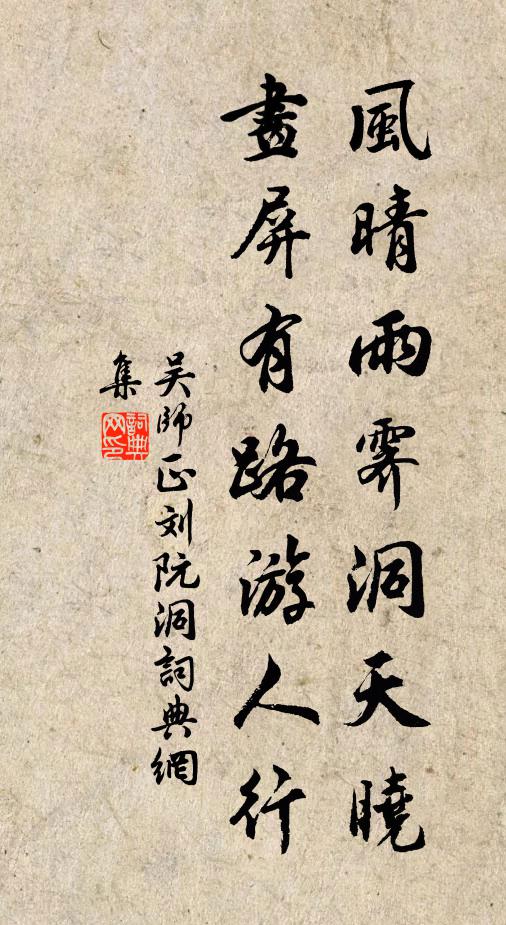 風晴雨霽洞天曉
畫屏有路游人行
吴師正刘阮洞詞典網
集
詞典
网印